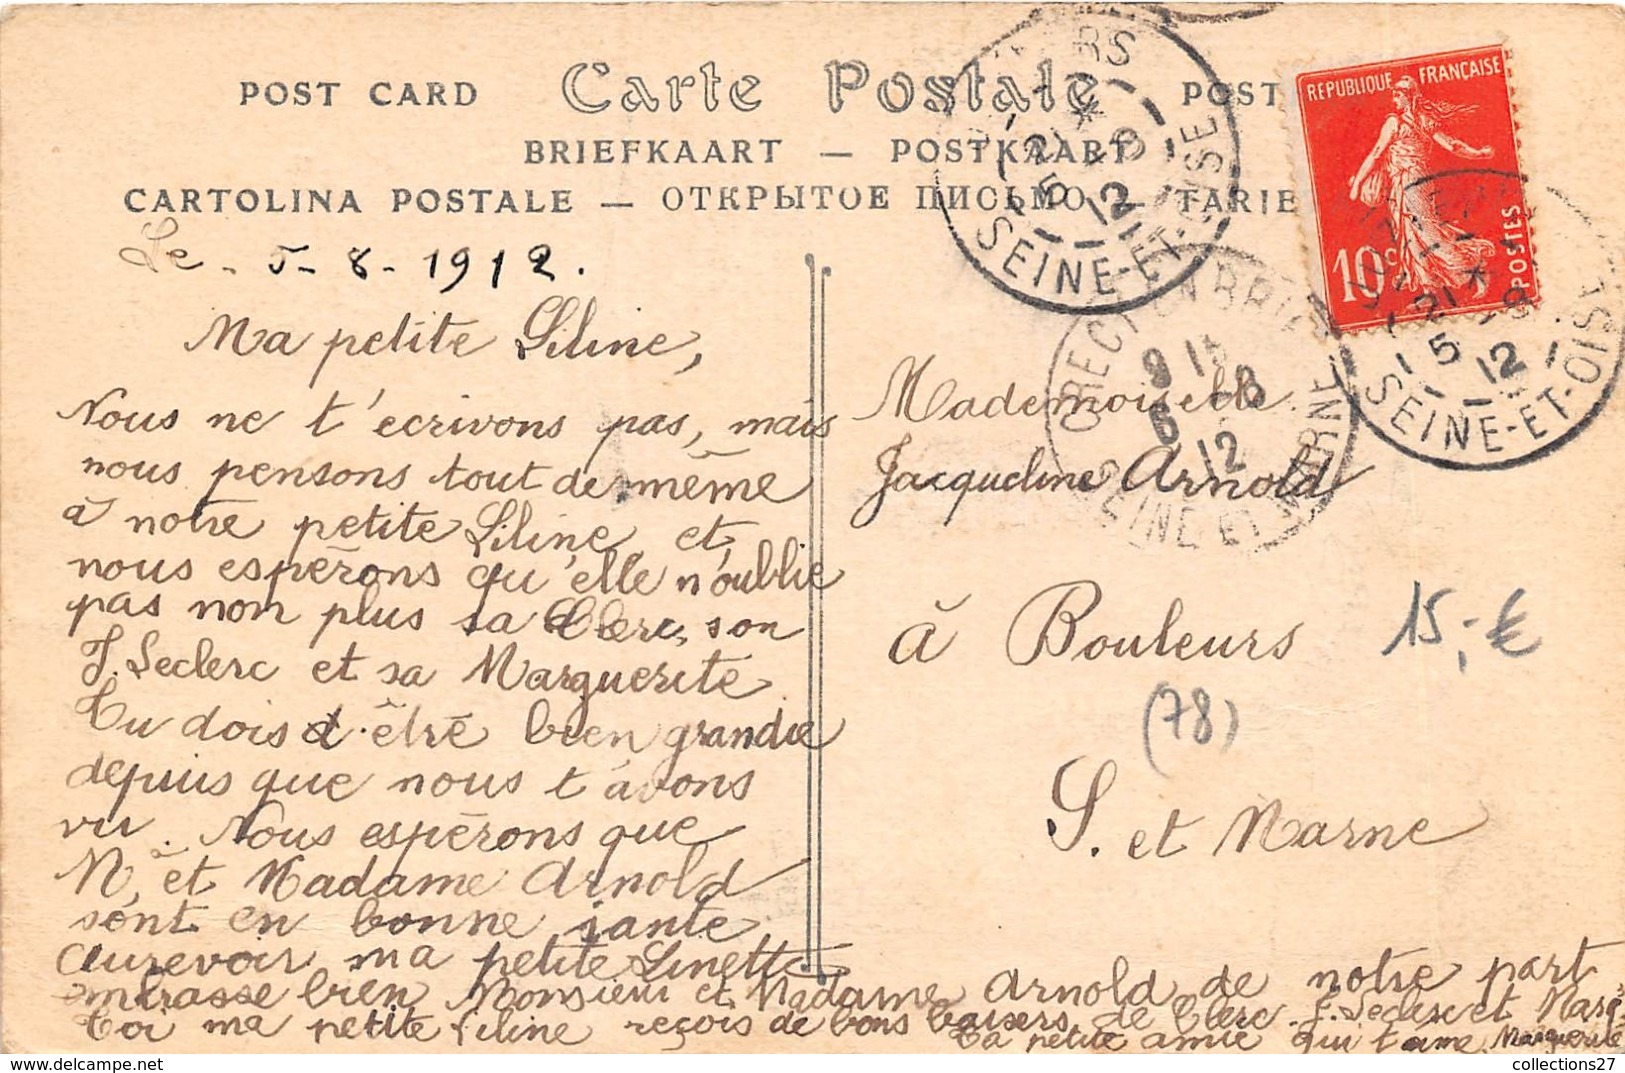 POST CARD Carte Postale POST
BRIEFKAART — POSTKAART
CARTOLINA POSTALE — ОТКРЫТОЕ ПИСЬМО — TARIE
REPUBLIQUE FRANÇAISE
10c POSTES
SEINE-ET-OISE
21 * 5 8 12
SEINE-ET-OISE
21 * 5 8 12
CRECY EN BRIE
9 15
6 8
12
SEINE ET MARNE
Le - 5 - 8 - 1912.
Ma petite Liline,
Nous ne t'ecrivons pas, mais
nous pensons tout de même
à notre petite Liline et
nous espérons qu'elle n'oublie
pas non plus sa Clerc, son
J. Leclerc et sa Marguerite
Tu dois être bien grandie
depuis que nous t'avons
vu. Nous espérons que
M, et Madame Arnold
sont en bonne sante
Aurevoir ma petite Linette
embrasse bien Monsieur et Madame Arnold de notre part
Toi ma petite Liline reçois de bons baisers de Clerc. J. Leclerc et Marg
Ta petite amie qui t'aime Marguerite
Mademoiselle
Jacqueline Arnold
à Bouleurs
15,- €
(78)
S. et Marne
collections27